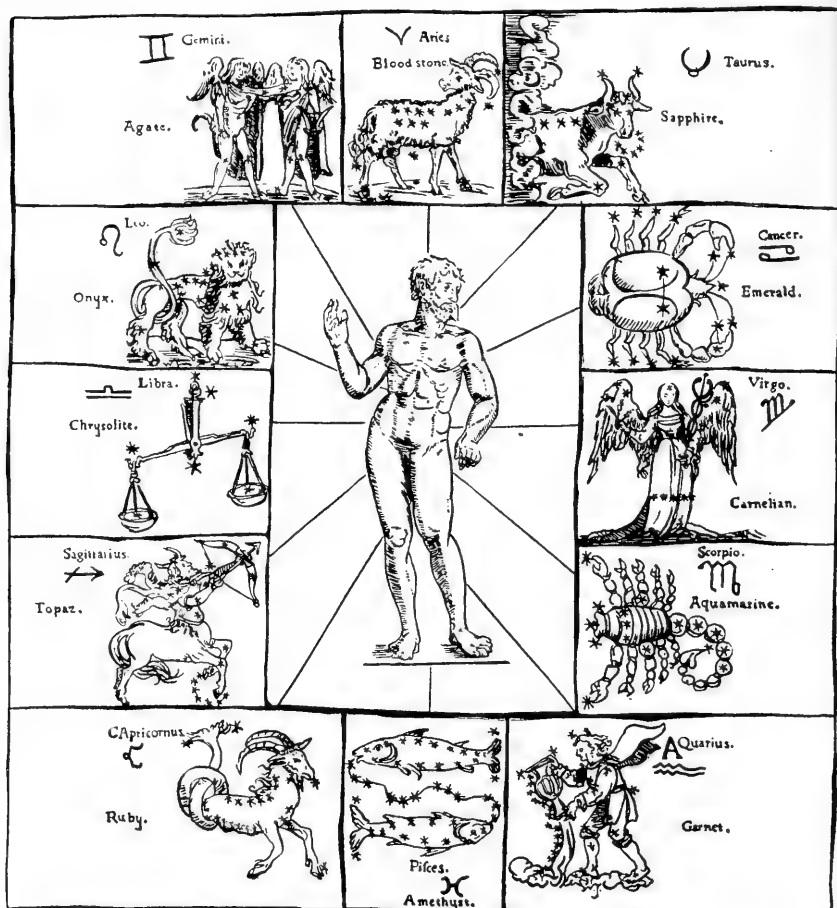 Gemini.
Agate.
Aries
Blood stone.
Taurus.
Sapphire.
Leo.
Onyx.
Cancer.
Emerald.
Libra.
Chrysolite.
Virgo.
Carnelian.
Sagittarius.
Topaz.
Scorpio.
Aquamarine.
CApricornus.
Ruby.
Piſces.
Amethyst.
AQuarius.
Garnet.